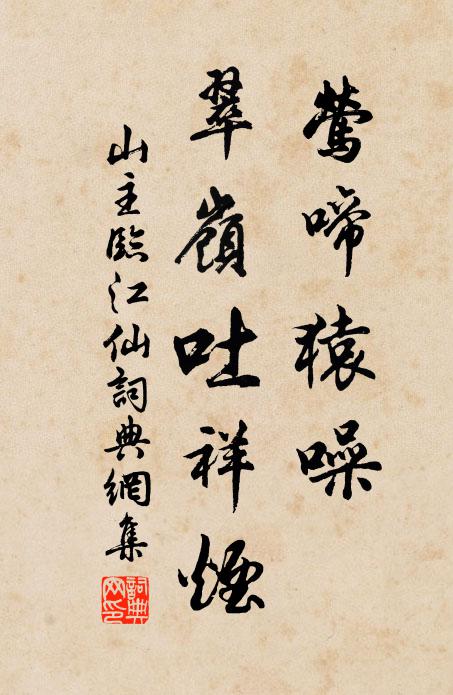 鶯啼猿噪
翠嶺吐祥煙
山主臨江仙詞典網集
詞典网印